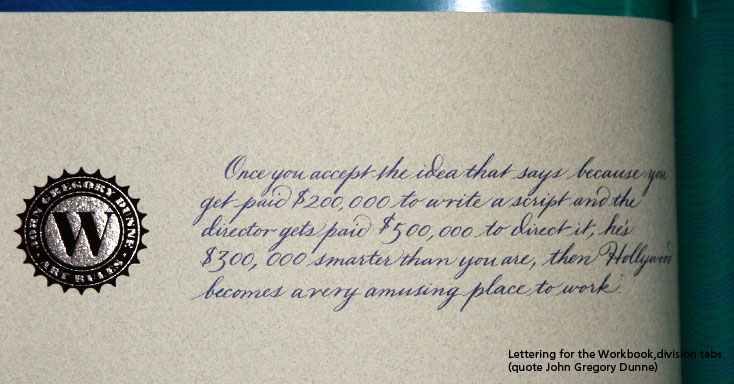 Once you accept the idea that says because you
get paid $200,000 to write a script and the
director gets paid $500,000 to direct it, he's
$300,000 smarter than you are, then Hollywood
becomes a very amusing place to work.
JOHN GREGORY DUNNE
W
ART RULES
Lettering for the Workbook,division tabs
(quote John Gregory Dunne)